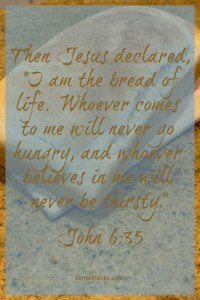 Then Jesus declared,
"I am the bread of
life. Whoever comes
to me will never go
hungry, and whoever
believes in me will
never be thirsty."
John 6:35